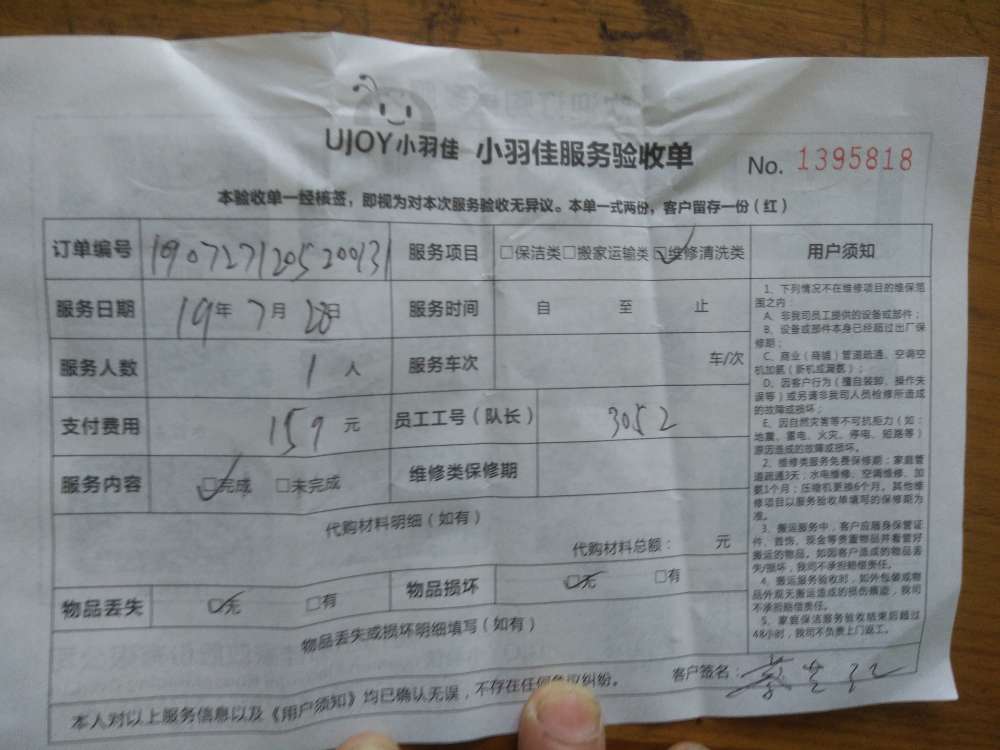 UJOY小羽佳 小羽佳服务验收单 No. 1395818
本验收单一经核签，即视为对本次服务验收无异议。本单一式两份，客户留存一份（红）
订单编号 190727120520013 服务项目 □保洁类□搬家运输类☑维修清洗类 用户须知
服务日期 19年7月28日 服务时间 自 至 止
服务人数 1人 服务车次 车/次
支付费用 159元 员工工号（队长） 3052
服务内容 ☑完成 □未完成 维修类保修期
代购材料明细（如有）
代购材料总额： 元
物品丢失 ☑无 □有 物品损坏 ☑无 □有
物品丢失或损坏明细填写（如有）
1、下列情况不在维修项目的维保范
围之内：
A、非我司员工提供的设备或部件；
B、设备或部件本身已经超过出厂保
修期；
C、商业（商铺）管道疏通、空调空
机加氨（新机或漏氨）；
D、因客户行为（擅自装卸、操作失
误等）或另请非我司人员检修所造成
的故障或损坏；
E、因自然灾害等不可抗拒力（如：
地震、雷电、火灾、停电、短路等）
原因造成的故障或损坏。
2、维修类服务免费保修期：家庭管
道疏通3天；水电维修、空调维修、加
氨1个月；压缩机更换6个月。其他维
修项目以服务验收单填写的保修期为
准。
3、搬运服务中，客户应随身保管证
件、首饰、现金等贵重物品并看管好
搬运的物品。如因客户造成的物品丢
失/损坏，我司不承担赔偿责任。
4、搬运服务验收时，如外包装或物
品外观无搬运造成的损伤痕迹，我司
不承担赔偿责任。
5、家庭保洁服务验收结束后超过
48小时，我司不负责上门返工。
本人对以上服务信息以及《用户须知》均已确认无误，不存在任何争议纠纷。 客户签名：